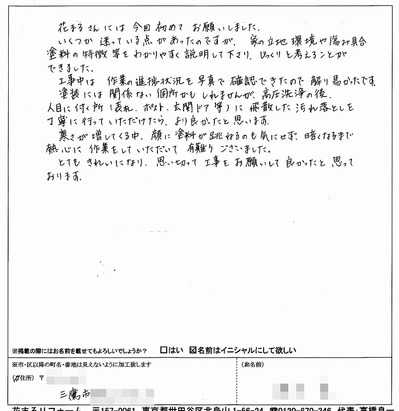 花まるさんには今回初めてお願いしました。
いくつか迷っている点があったのですが、家の立地環境や傷み具合
塗料の特徴等をわかりやすく説明して下さり、じっくりと考えることが
できました。
工事中は作業の進捗状況を写真で確認できたので解り易かったです。
塗装には関係ない個所かもしれませんが、高圧洗浄の後、
人目に付く所(表札、ポスト、玄関ドア等)に飛散した汚れ落としを
丁寧に行っていただけたら、より良かったと思います。
暑さが増してくる中、顔に塗料が跳ねるのも気にせず、暗くなるまで
熱心に作業をしていただいて有難うございました。
とてもきれいになり、思い切って工事をお願いして良かったと思って
おります。
※掲載の際にはお名前を載せてもよろしいでしょうか? □はい ☑名前はイニシャルにして欲しい
※市・区以降の町名・番地は見えないように加工致します
(お名前)
(ご住所) 〒
三鷹市
花まるリフォーム 〒157-0061 東京都世田谷区北烏山1-56-24 ☎0120-870-346 代表:高橋良一